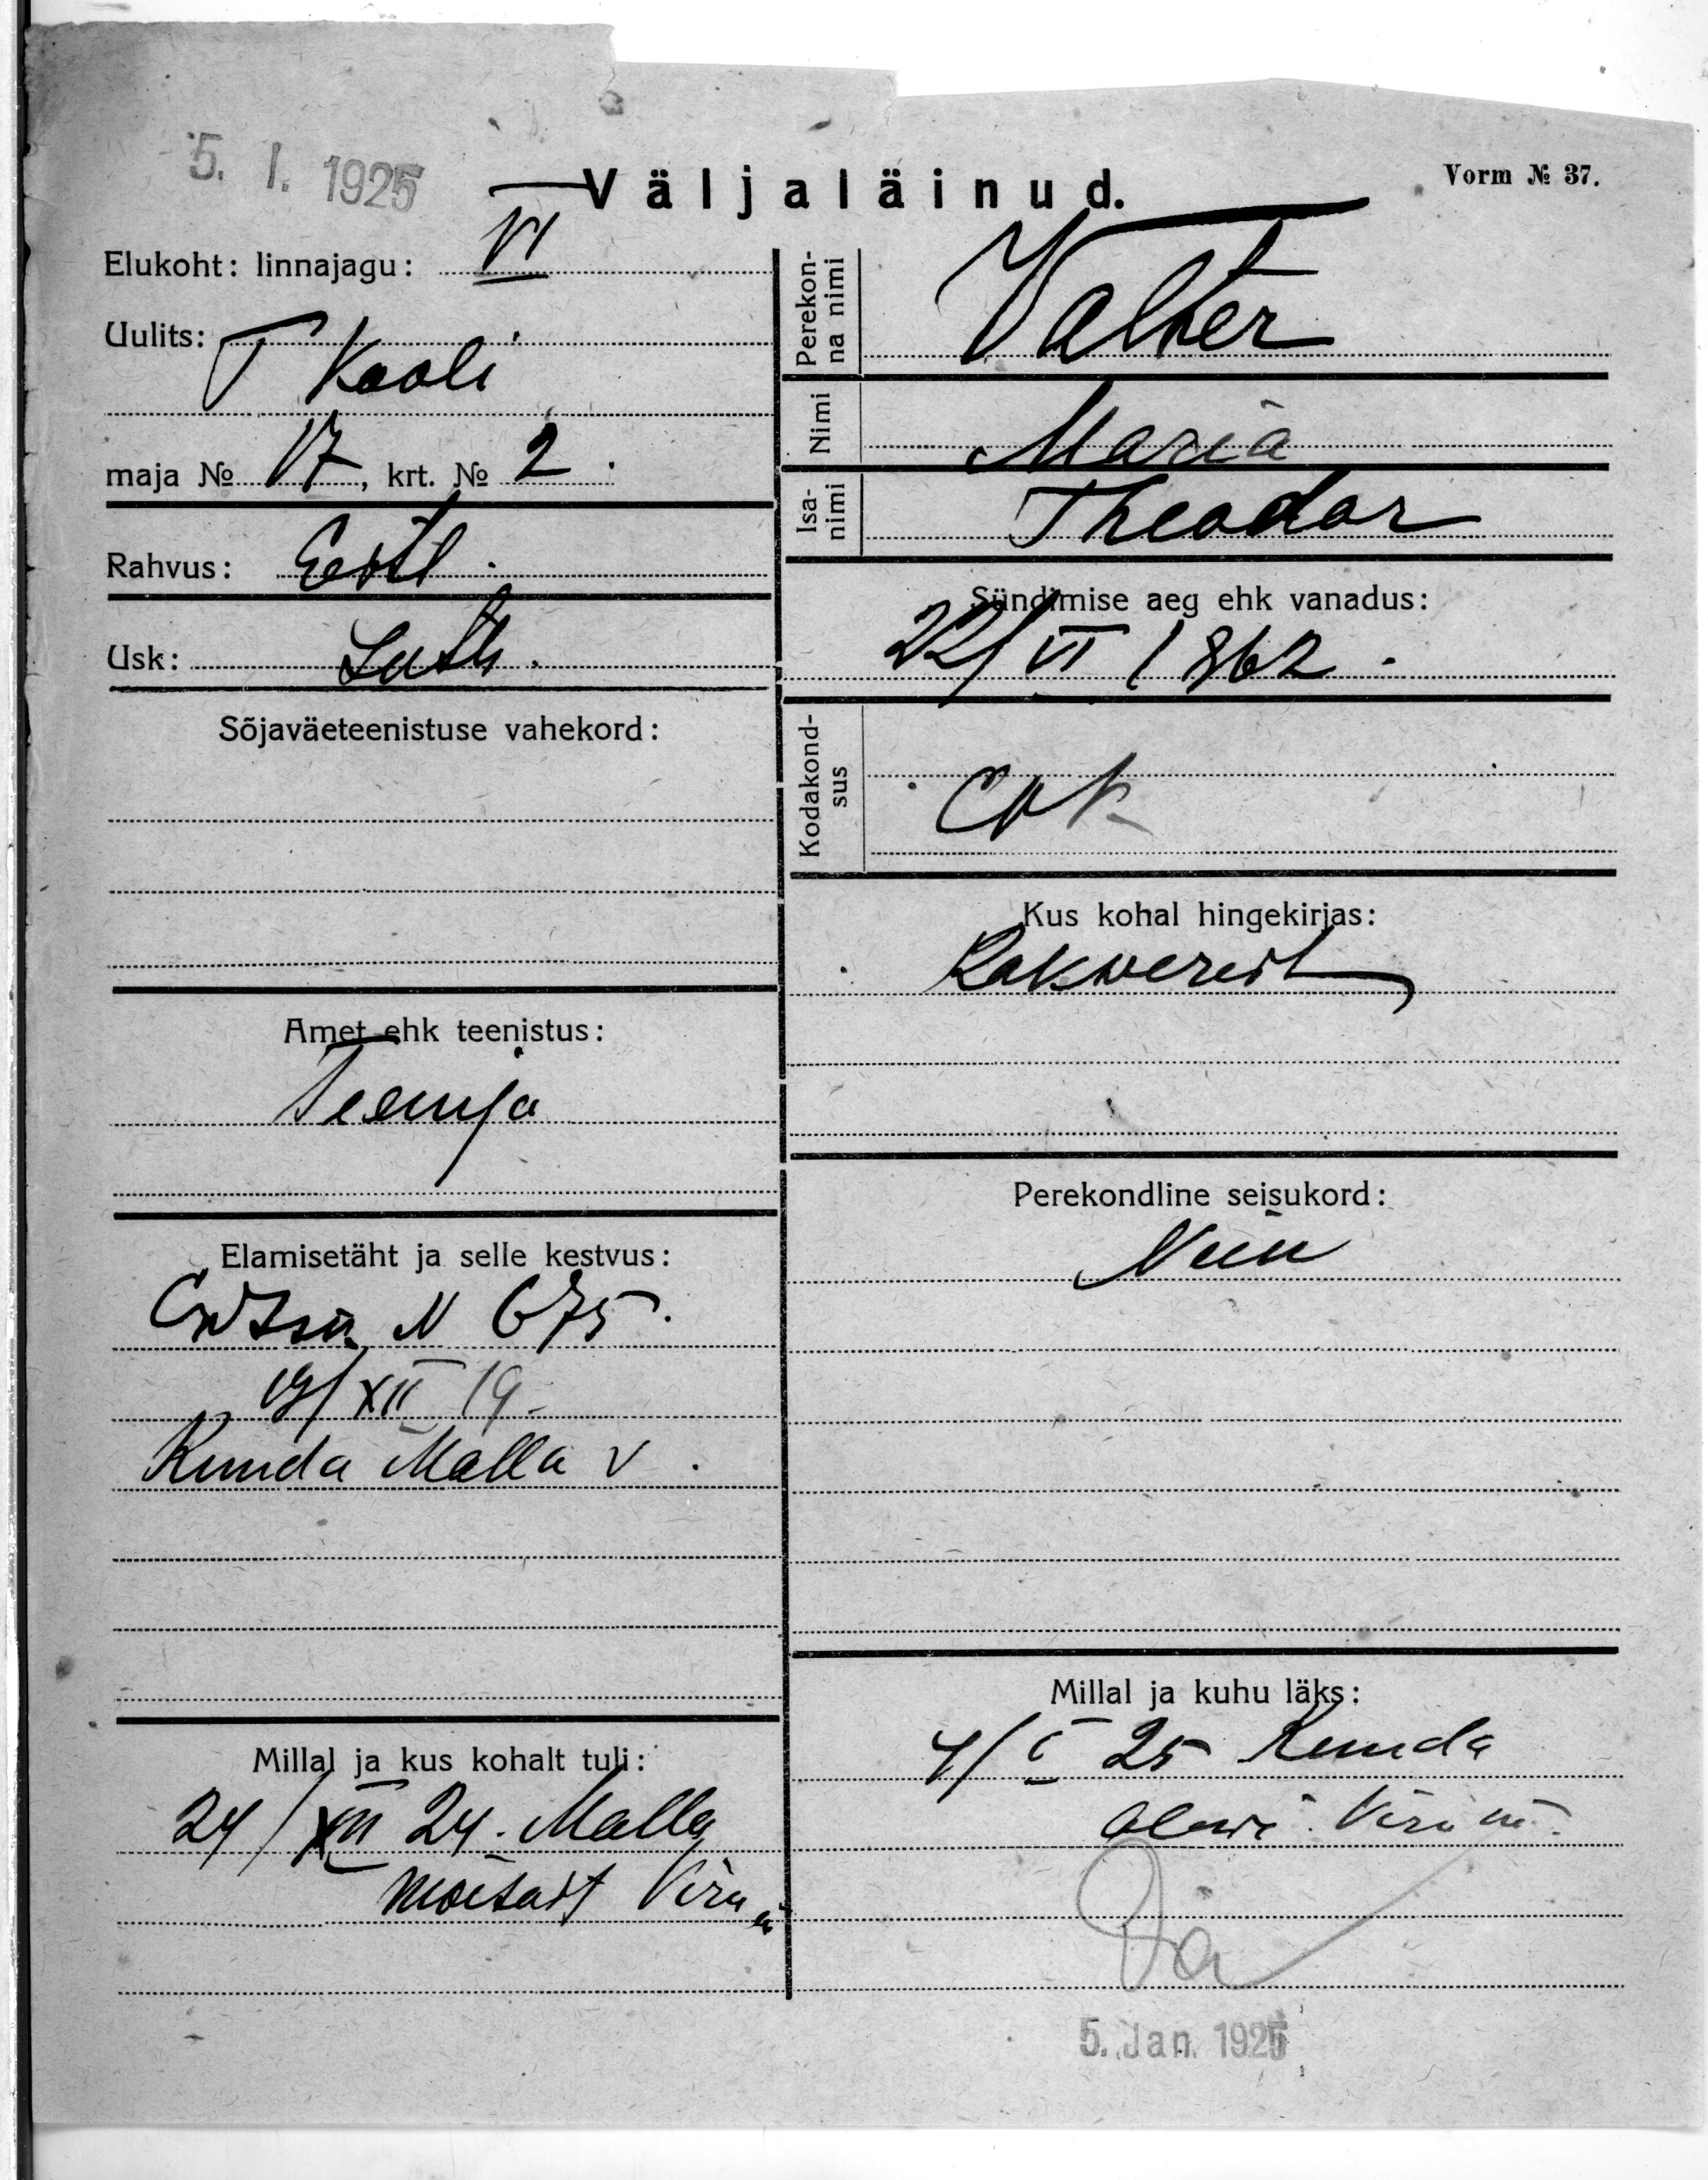 5. I. 1925
Väljaläinud.
Vorm № 37.
Elukoht: linnajagu: VI
Uulits: T Kooli
maja № 17, krt. № 2.
Rahvus: Eesti
Usk: Luth.
Sõjaväeteenistuse vahekord:
Amet ehk teenistus:
Teenija
Elamisetäht ja selle kestvus:
N 675.
19/XII 19
Kunda Malla v.
Millal ja kus kohalt tuli:
24/XII 24. Malla
moisast Viru
Perekonna nimi Valter
Nimi Maria
Isanimi Theodor
Sündimise aeg ehk vanadus:
22/VI 1862.
Kodakondsus
Kus kohal hingekirjas:
Rakverest
Perekondline seisukord:
Neiu
Millal ja kuhu läks:
4/I 25 Kunda
alevi Viru m.
5. Jan. 1925